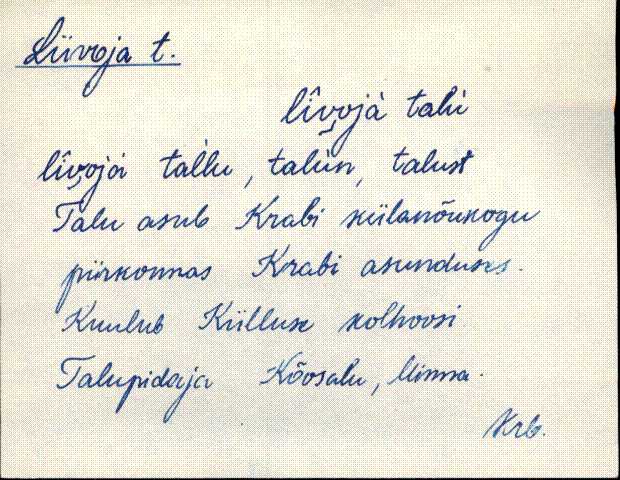 Liivoja t.
lîvojà talù
lîvojà tal̀lu, talùn, talust
Talu asub Krabi külanõukogu
piirkonnas Krabi asunduses.
Kuulub Külluse kolhoosi
Talupidaja Kõosalu, Minna.
Krb.